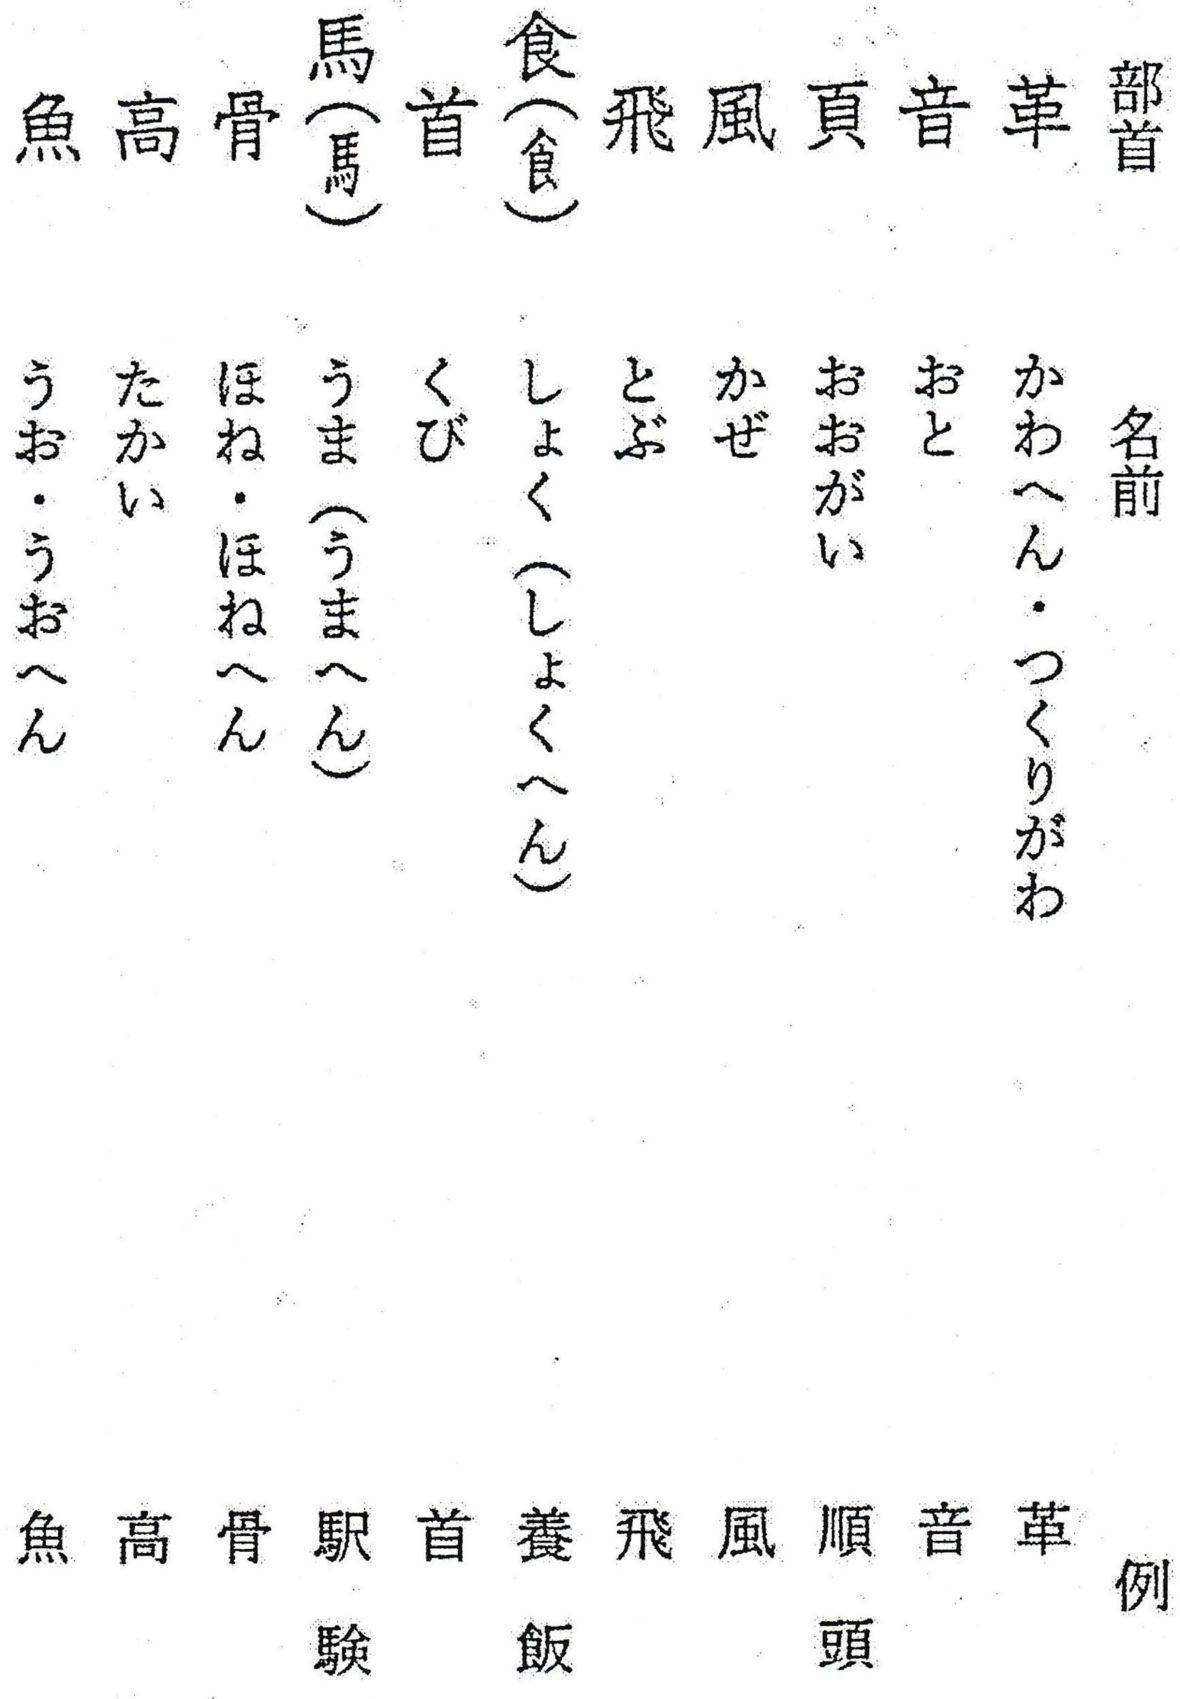 部首 名前 例
革 かわへん・つくりがわ 革
音 おと 音
頁 おおがい 順 頭
風 かぜ 風
飛 とぶ 飛
食(飠) しょく(しょくへん) 養 飯
首 くび 首
馬(馬) うま(うまへん) 駅 験
骨 ほね・ほねへん 骨
高 たかい 高
魚 うお・うおへん 魚